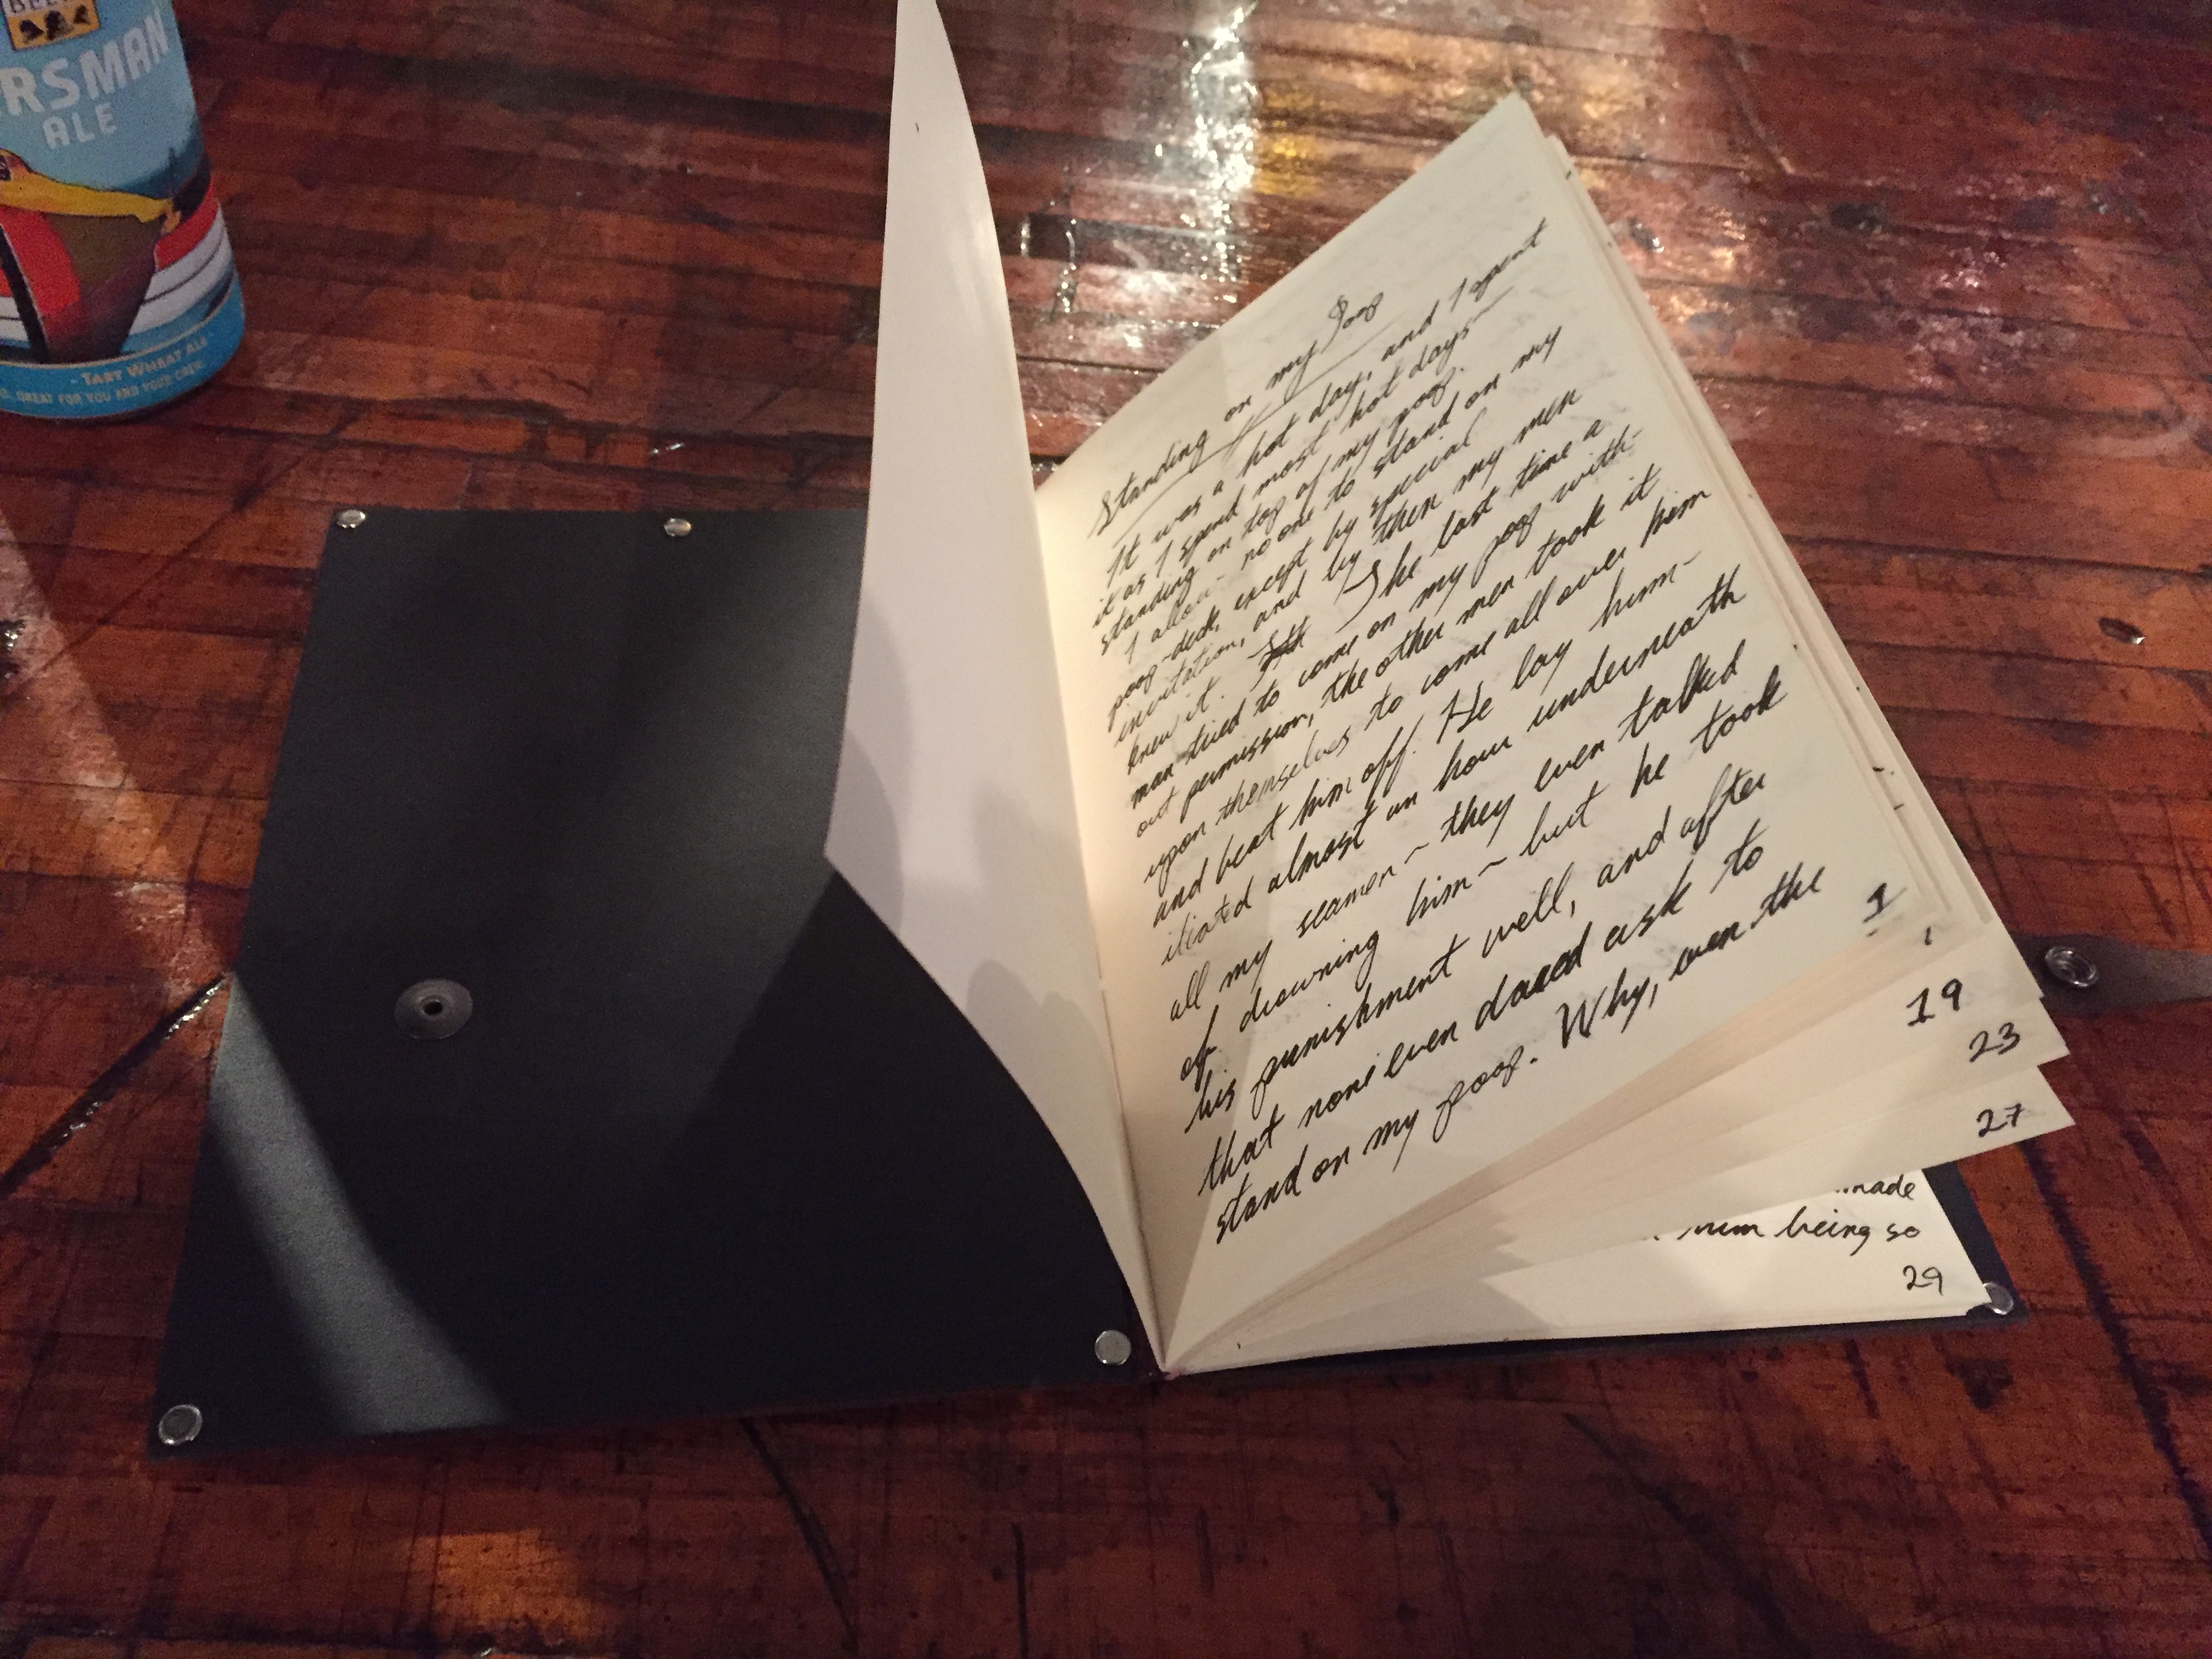 BELL'S
RSMAN
ALE
- TART WHEAT ALE
GREAT FOR YOU AND YOUR CREW.
Standing on my Poop
It was a hot day, and I spent
it as I spend most hot days—
standing on top of my poop.
I allow no one to stand on my
poop-deck, except by special
invitation, and by then my men
knew it. The last time a
man tried to come on my poop with-
out permission, the other men took it
upon themselves to come all over him
and beat him off. He lay hum-
iliated almost an hour underneath
all my seamen - they even talked
of drowning him - but he took
his punishment well, and after
that none even dared ask to
stand on my poop. Why, even the
1
19
23
27
made
being so
29